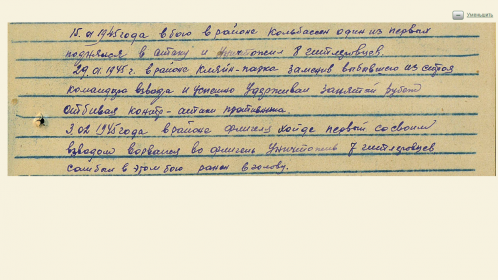 Уменьшить
15.01.1945 года в бою в районе Кольбассен один из первых
поднялся в атаку и уничтожил 8 гитлеровцев.
29.01.1945 г. в районе Кляйн-парка заменив выбывшего из строя
командира взвода и успешно удерживал занятый рубеж
отбивая контр-атаки противника.
3.02.1945 года в районе первой со своим
взводом ворвался во уничтожив 7 гитлеровцев
сам был в этом бою ранен в голову.